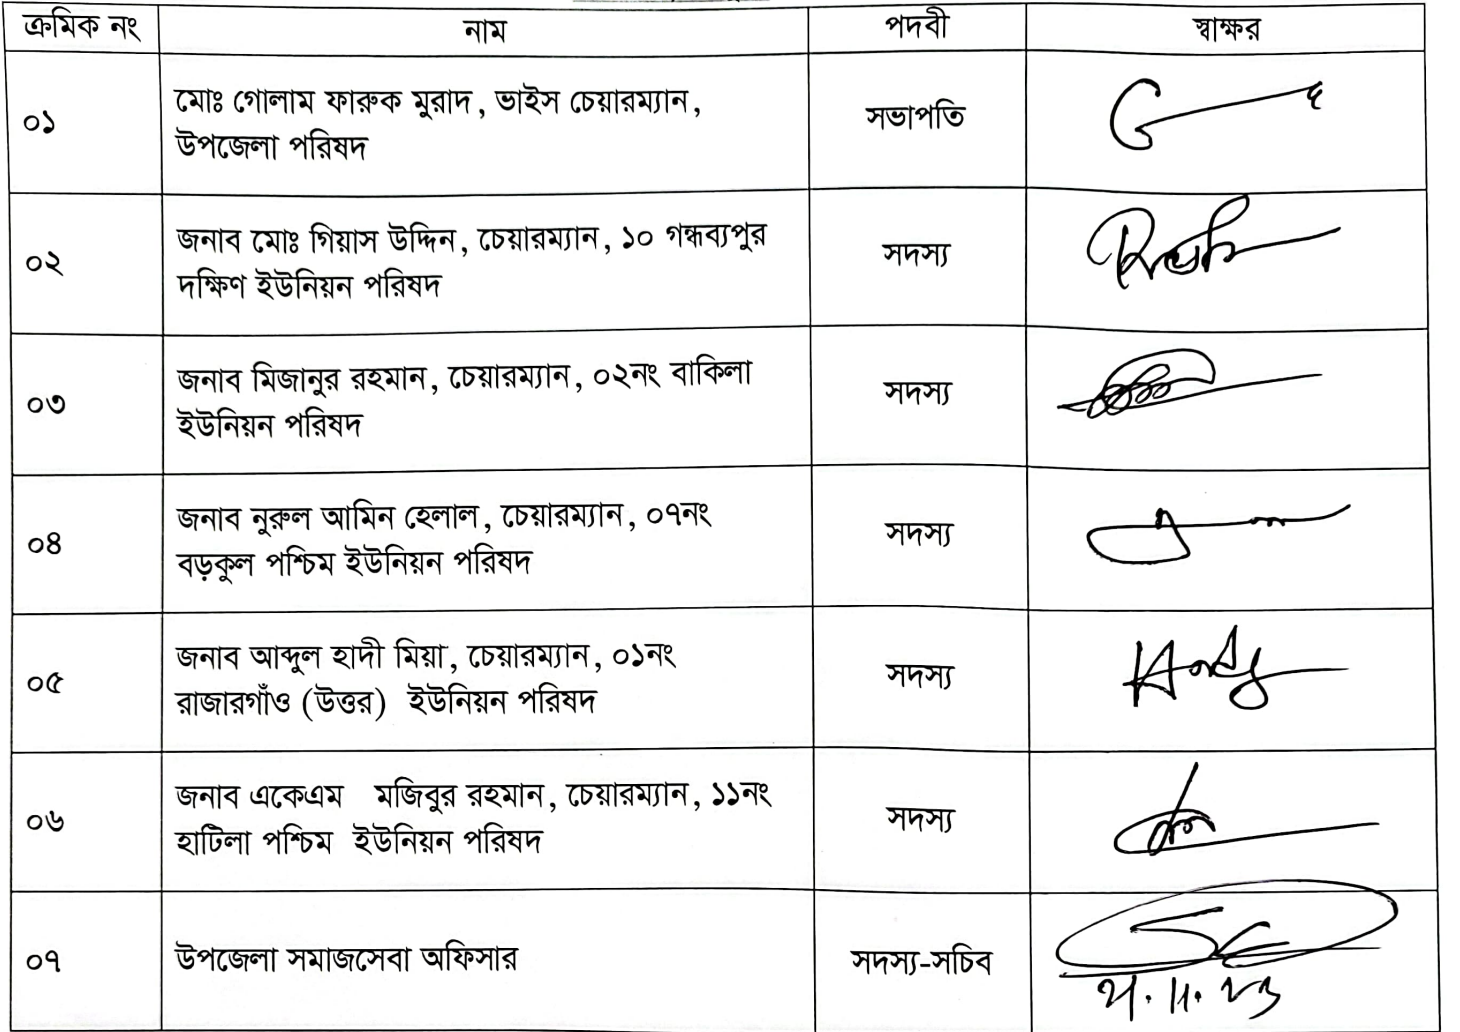 ক্রমিক নং নাম পদবী স্বাক্ষর
০১ মোঃ গোলাম ফারুক মুরাদ, ভাইস চেয়ারম্যান, সভাপতি
উপজেলা পরিষদ
০২ জনাব মোঃ গিয়াস উদ্দিন, চেয়ারম্যান, ১০ গন্ধব্যপুর সদস্য
দক্ষিণ ইউনিয়ন পরিষদ
০৩ জনাব মিজানুর রহমান, চেয়ারম্যান, ০২নং বাকিলা সদস্য
ইউনিয়ন পরিষদ
০৪ জনাব নুরুল আমিন হেলাল, চেয়ারম্যান, ০৭নং সদস্য
বড়কুল পশ্চিম ইউনিয়ন পরিষদ
০৫ জনাব আব্দুল হাদী মিয়া, চেয়ারম্যান, ০১নং সদস্য
রাজারগাঁও (উত্তর) ইউনিয়ন পরিষদ
০৬ জনাব একেএম মজিবুর রহমান, চেয়ারম্যান, ১১নং সদস্য
হাটিলা পশ্চিম ইউনিয়ন পরিষদ
০৭ উপজেলা সমাজসেবা অফিসার সদস্য-সচিব